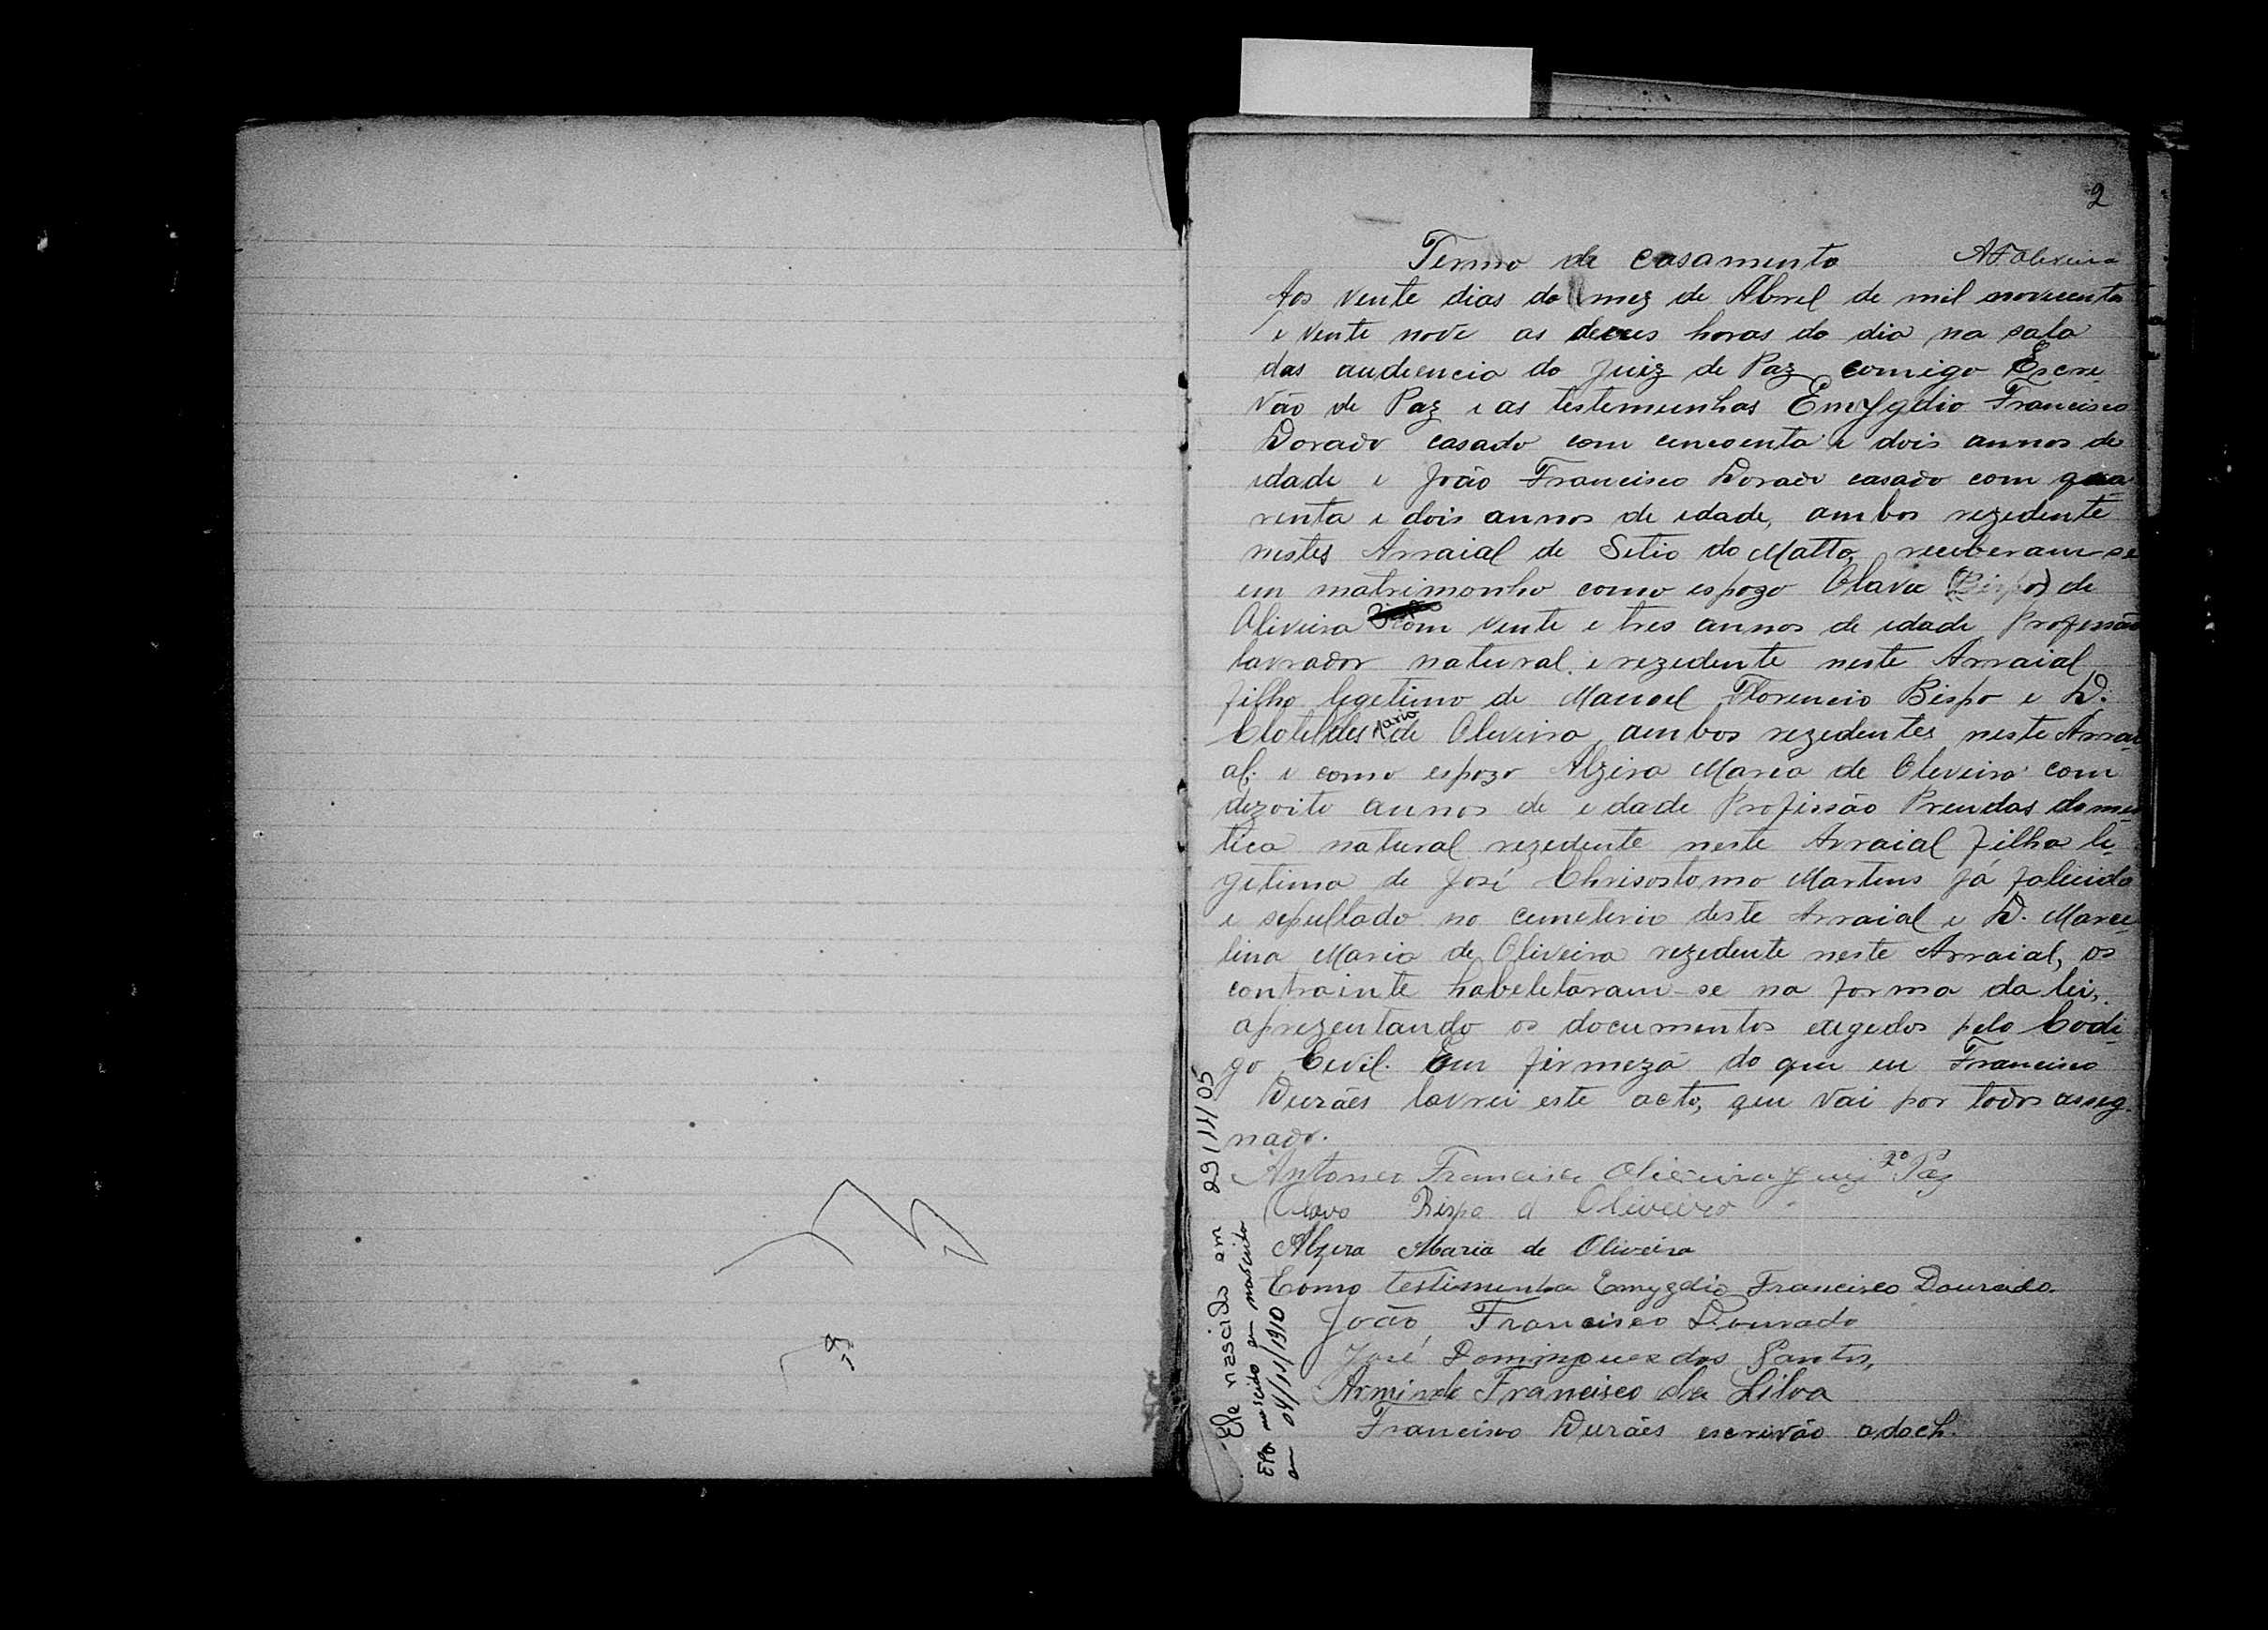 2
Termo de casamento AFOliveira
Aos vente dias do mez de Abrel de mil novecento
e vente nove as horas do dia na sala
das audiencia do Juiz de Paz comigo Escre-
vão de Paz e as testemunhas Emygdio Francisco
Dorado casado com cincoenta e dois annos de
idade e João Francisco Dorado casado com qua-
renta e dois annos de idade, ambos rezedente
nestes Arraial de Setio do Matto, receberam-se
em matrimonho como espozo Olavo (Bispo) de
Oliveira com vente e tres annos de idade Profissão
lavrador natural e rezedente neste Arraial
filho legetimo de Manoel Florencio Bispo e D.
Clotildes Maria de Oliveira ambos rezedentes neste Arrai-
al; e como espoza Alzira Maria de Oleveira com
dezoito annos de edade Profissão Prendas domes-
tica natural rezedente neste Arraial filha le-
getima de José Chrisostomo Martins já falecido
e sepultado no cemeterio deste Arraial e D. Marce-
lina Maria de Oliveira rezedente neste Arraial, os
contrainte habeletaram-se na forma da lei,
aprezentando os documentos exegedos pelo Codi-
go Cevil. Em firmeza do que eu Francisco
Durães lavrei este acto, que vai por todos asseg-
nado.
Antonio Francisco Oliveira Juiz 2º Paz
Olavo Bispo d Oliveira
Alzira Maria de Oliveira
Como testimunha Emygdio Francisco Dourado.
João Francisco Dourado
José Domingues dos Santos,
Armindo Francisco da Silva
Francisco Durães escrivão adoch.
Ele nascido em 29/11/05
Ela nascido em nascida
em 04/11/1910